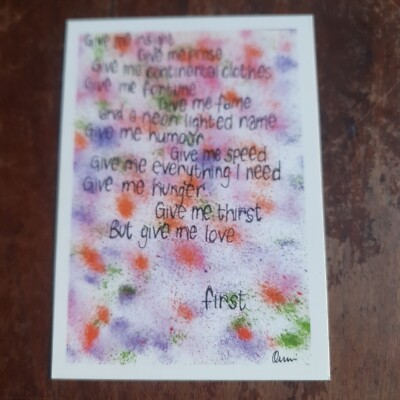 Give me insight
Give me praise
Give me continental clothes
Give me fortune
Give me fame
and a neon lighted name
Give me humour
Give me speed
Give me everything I need
Give me hunger
Give me thirst
But give me love
first